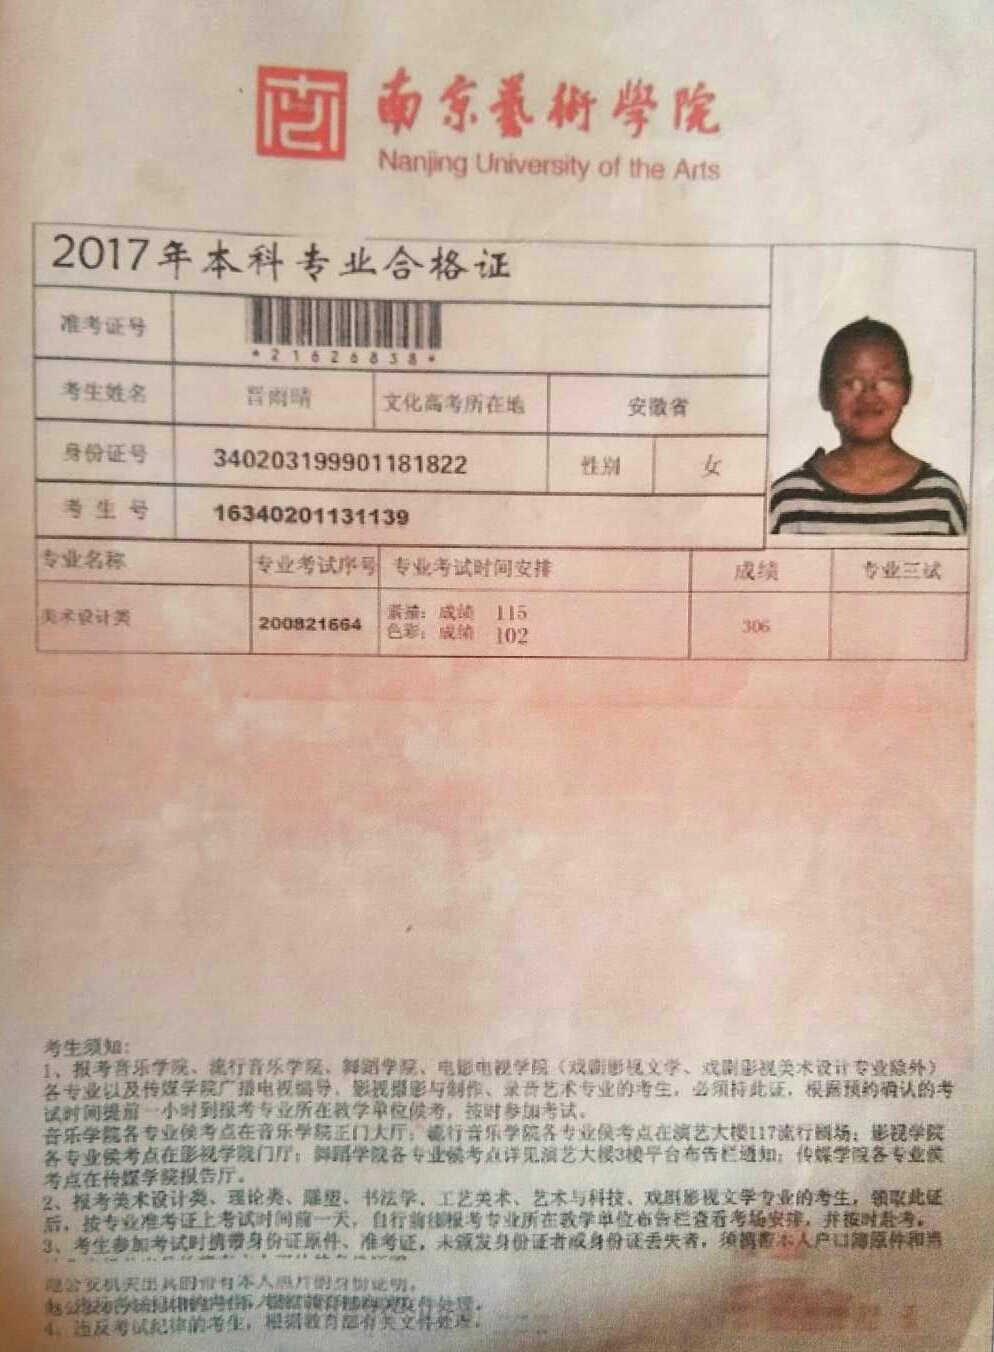 南京藝術學院
Nanjing University of the Arts
2017年本科专业合格证
准考证号
*21626838*
考生姓名 晋雨晴 文化高考所在地 安徽省
身份证号 340203199901181822 性别 女
考生号 16340201131139
专业名称 专业考试序号 专业考试时间安排 成绩 专业三试
美术设计类 200821664 素描：成绩 115 306
色彩：成绩 102
考生须知：
1、报考音乐学院、流行音乐学院、舞蹈学院、电影电视学院（戏剧影视文学、戏剧影视美术设计专业除外）
各专业以及传媒学院广播电视编导、影视摄影与制作、录音艺术专业的考生，必须持此证，根据预约确认的考
试时间提前一小时到报考专业所在教学单位候考，按时参加考试。
音乐学院各专业候考点在音乐学院正门大厅；流行音乐学院各专业候考点在演艺大楼117流行剧场；影视学院
各专业候考点在影视学院门厅；舞蹈学院各专业候考点详见演艺大楼3楼平台布告栏通知；传媒学院各专业候
考点在传媒学院报告厅。
2、报考美术设计类、理论类、雕塑、书法学、工艺美术、艺术与科技、戏剧影视文学专业的考生，领取此证
后，按专业准考证上考试时间前一天，自行前往报考专业所在教学单位布告栏查看考场安排，并按时赴考。
3、考生参加考试时携带身份证原件、准考证，未颁发身份证者或身份证丢失者，须携带本人户口簿原件和当
地公安机关出具的带有本人照片的身份证明。
4、违反考试纪律的考生，根据教育部有关文件处理。